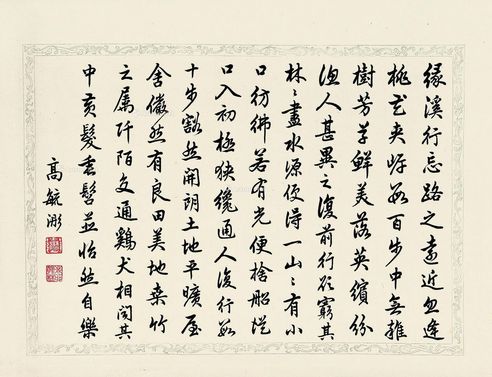 緣溪行忘路之遠近忽逢
桃花夾岸數百步中無雜
樹芳草鮮美落英繽紛
漁人甚異之復前行欲窮其
林〻盡水源便得一山〻有小
口彷彿若有光便捨船從
口入初極狹纔通人復行數
十步豁然開朗土地平曠屋
舍儼然有良田美地桑竹
之屬阡陌交通鷄犬相聞其
中黃髮垂髫並怡然自樂
高毓浵